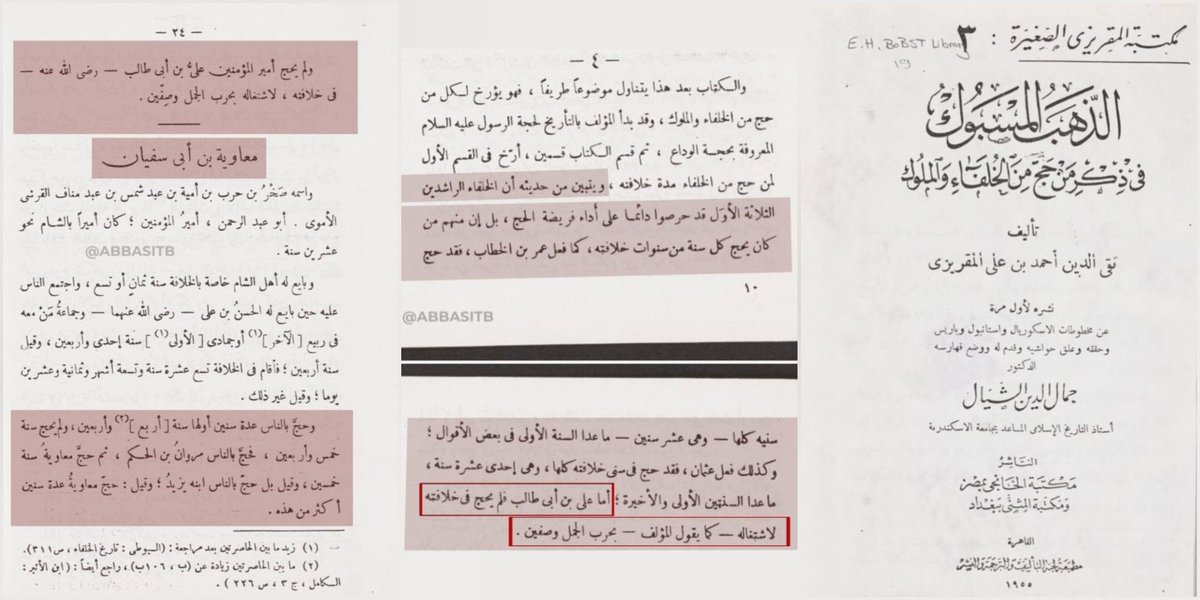 — ٣٤ —
ولم يحج أمير المؤمنين علىُّ بن أبى طالب — رضى الله عنه —
فى خلافته ، لاشتغاله بحرب الجمل وصِفّين .
معاوية بن أبى سفيان
واسمه صَخْرُ بن حرب بن أمية بن عبد شمس بن عبد مناف القرشى
الأموى . أبو عبد الرحمن ، أميرُ المؤمنين ؛ كان أميراً بالشام نحو
عشرين سنة .
@ABBASITB
وبايع له أهل الشام خاصة بالخلافة سنة ثمانٍ أو تسع ، واجتمع الناس
عليه حين بايع له الحسنُ بن على — رضى الله عنهما — وجماعةُ مَنْ معه
فى ربيع [ الآخر ](١) أوجمادى [ الأولى(١) ] سنة إحدى وأربعين ، وقيل
سنة أربعين ؛ فأقام فى الخلافة تسع عشرة سنة وتسعة أشهر وثمانية وعشرين
يوما ؛ وقيل غير ذلك .
وحجّ بالناس عدة سنين أولها سنة [ أربع ](٢) وأربعين ، ولم يحج سنة
خمس وأربعين ، فحجّ بالناس مروانُ بن الحكم ، ثم حجَّ معاويةُ سنة
خمسين ، وقيل بل حجَّ بالناس ابنه يزيدُ ؛ وقيل : حجّ معاويةُ عدة سنين
أكثر من هذه .
(١) زيد ما بين الحاصرتين بعد مراجعة : (السيوطى : تاريخ الخلفاء ، ص ٣١١).
(٢) ما بين الحاصرتين زيادة عن (ب ، ١٠٦ب) ، راجع أيضاً : (ابن الأثير :
الكامل ، ج ٣ ، ص ٢٢٦ ) .
— ٤ —
والكتاب بعد هذا يتناول موضوعاً طريفاً ، فهو يؤرخ لكل من
حج من الخلفاء والملوك ، وقد بدأ المؤلف بالتأريخ لحجة الرسول عليه السلام
المعروفة بحجة الوداع ، ثم قسم الكتاب قسمين ، أرّخ فى القسم الأول
لمن حج من الخلفاء مدة خلافته ، ويتبين من حديثه أن الخلفاء الراشدين
الثلاثة الأوَل قد حرصوا دائماً على أداء فريضة الحج ، بل إن منهم من
كان يحج كل سنة من سنوات خلافته ، كما فعل عمر بن الخطاب ، فقد حج
١٠
@ABBASITB
سنيه كلها — وهى عشر سنين — ما عدا السنة الأولى فى بعض الأقوال ؛
وكذلك فعل عثمان ، فقد حج فى سنى خلافته كلها ، وهى إحدى عشرة سنة ،
ما عدا السنتين الأولى والأخيرة ؛ أما على بن أبى طالب فلم يحج فى خلافته
لاشتغاله — كما يقول المؤلف — بحرب الجمل وصفين .
مكتبة المقريزى الصغيرة : ٣
E.H. BoBST Library
19
الذَّهَبُ المَسْبُوكْ
فى ذِكْرِ مَنْ حَجَّ مِنَ الخُلَفَاءِ وَالمُلوُك
تأليف
تقى الدين أحمد بن على المقريزى
نشره لأول مرة
عن مخطوطات الاسكوريال واستانبول وباريس
وحققه وعلق حواشيه وقدم له ووضع فهارسه
الدكتور
جمال الدين الشيال
أستاذ التاريخ الإسلامى المساعد بجامعة الاسكندرية
الناشر
مكتبة الخانجى بمصر
ومكتبة المثنى ببغداد
القاهرة
مطبعة لجنة التأليف والترجمة والنشر
١٩٥٥